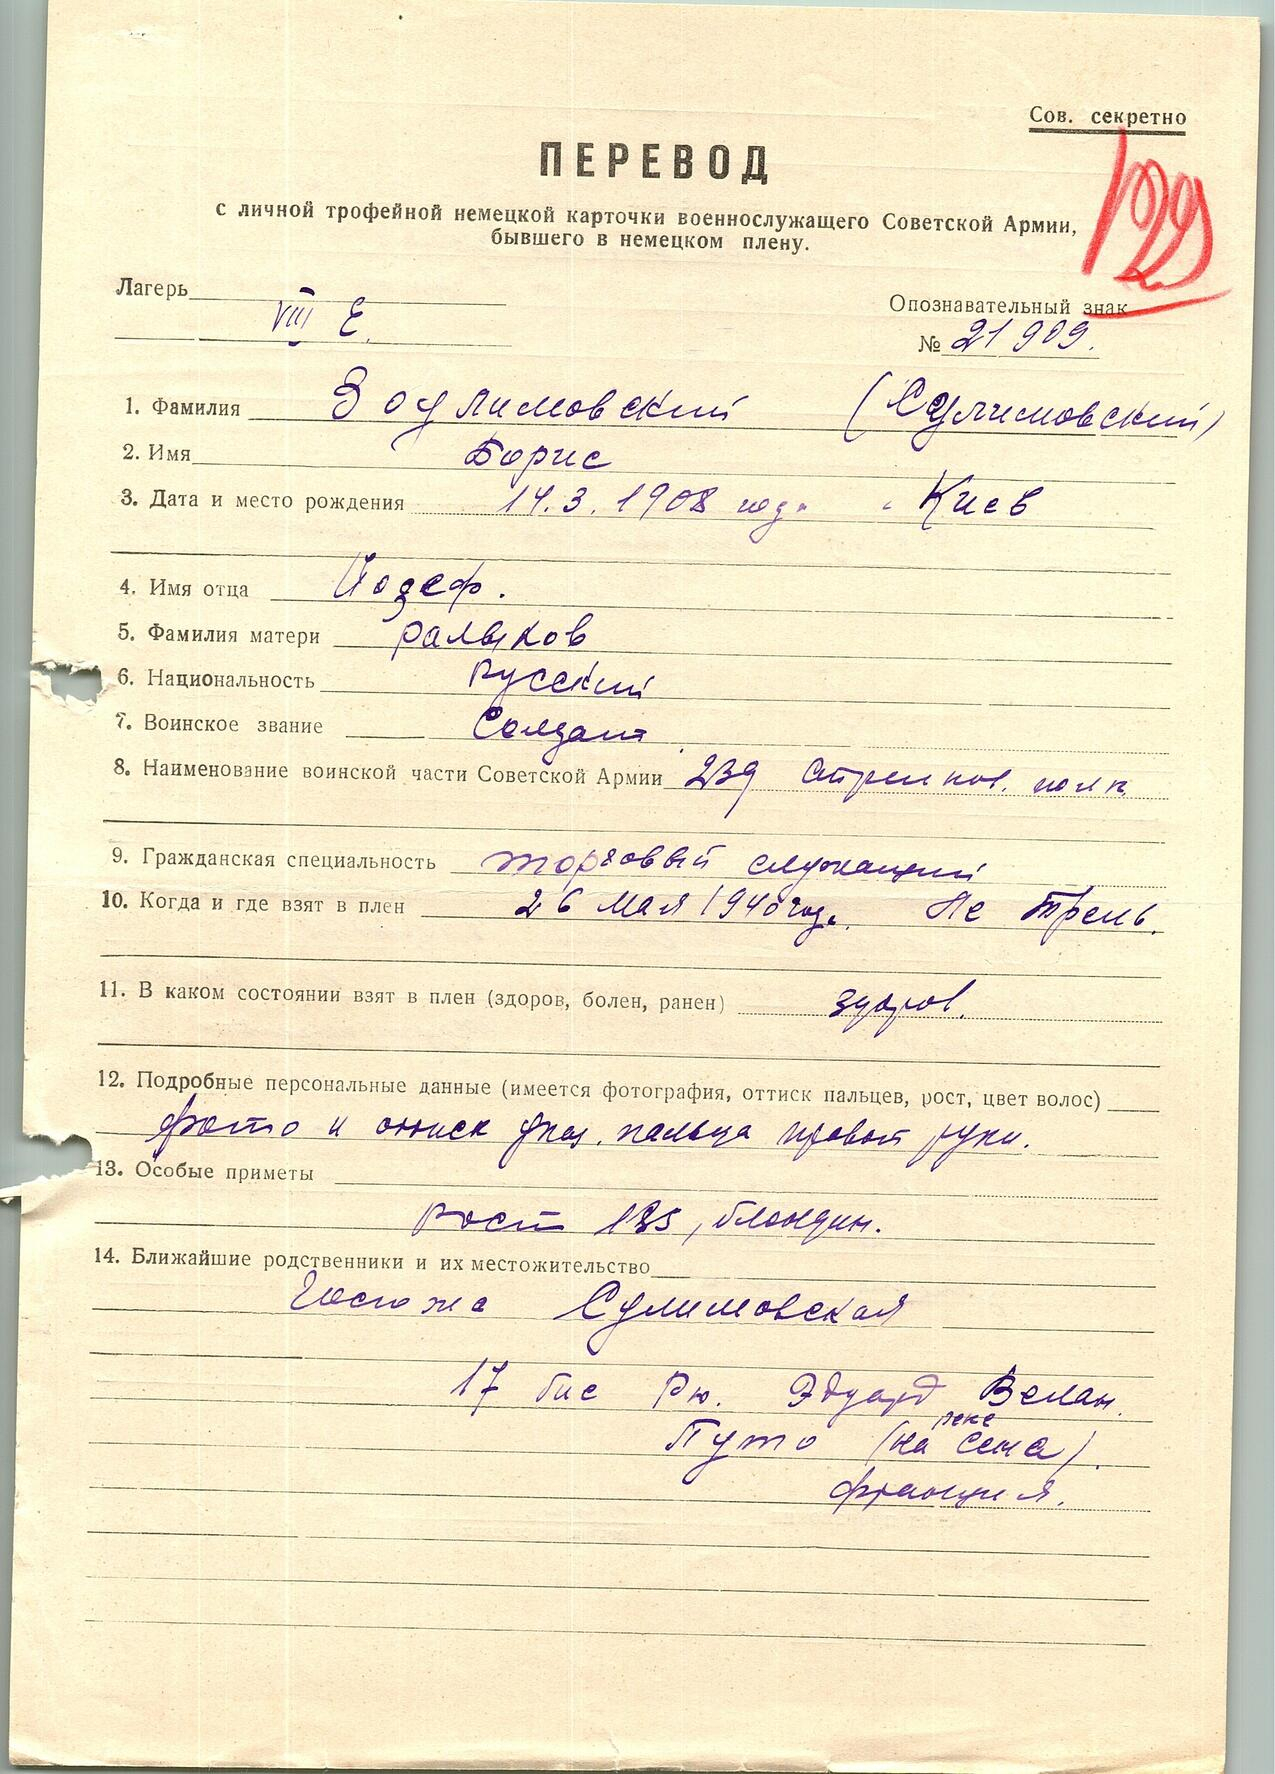 Сов. секретно
129
ПЕРЕВОД
с личной трофейной немецкой карточки военнослужащего Советской Армии,
бывшего в немецком плену.
Лагерь
VIII E.
Опознавательный знак
№ 21909.
1. Фамилия Зоулимовский (Сулимовский)
2. Имя Борис
3. Дата и место рождения 14.3.1908 года Киев
4. Имя отца Йозеф.
5. Фамилия матери
6. Национальность Русский
7. Воинское звание Солдат
8. Наименование воинской части Советской Армии 239 стрелков. полк
9. Гражданская специальность торговый служащий
10. Когда и где взят в плен 26 мая 1940 года. Ле
11. В каком состоянии взят в плен (здоров, болен, ранен) здоров.
12. Подробные персональные данные (имеется фотография, оттиск пальцев, рост, цвет волос)
фото и оттиск указ. пальца правой руки.
13. Особые приметы
рост 185, блондин.
14. Ближайшие родственники и их местожительство
Госпожа Сулимовская
17 бис Рю. Эдуард
Пюто (на реке Сена).
Франция.